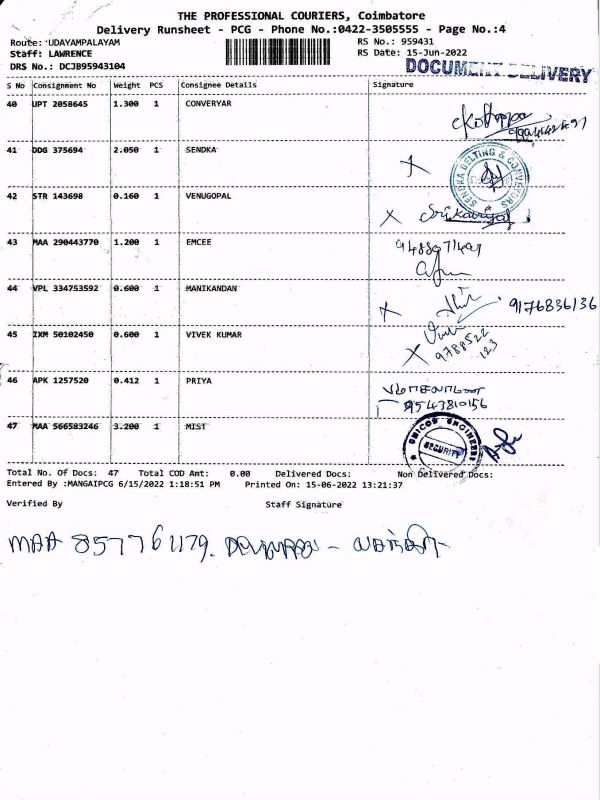 THE PROFESSIONAL COURIERS, Coimbatore
Delivery Runsheet - PCG - Phone No.:0422-3505555 - Page No.:4
Route: UDAYAMPALAYAM RS No.: 959431
Staff: LAWRENCE RS Date: 15-Jun-2022
DRS No.: DCJB95943104 DOCUMENT DELIVERY
S No Consignment No Weight PCS Consignee Details Signature
40 UPT 2058645 1.300 1 CONVERYAR
41 DDG 375694 2.050 1 SENDKA
SENDKA BELTING & CONVEYORS
42 STR 143698 0.160 1 VENUGOPAL
43 MAA 290443770 1.200 1 EMCEE
44 VPL 334753592 0.600 1 MANIKANDAN 9176836136
45 IXM 50102450 0.600 1 VIVEK KUMAR
9788522
123
46 APK 1257520 0.412 1 PRIYA
9543810156
47 MAA 566583246 3.200 1 MIST
SECURITY
Total No. Of Docs: 47 Total COD Amt: 0.00 Delivered Docs: Non Delivered Docs:
Entered By :MANGAIPCG 6/15/2022 1:18:51 PM Printed On: 15-06-2022 13:21:37
Verified By Staff Signature
MAA 857761179.